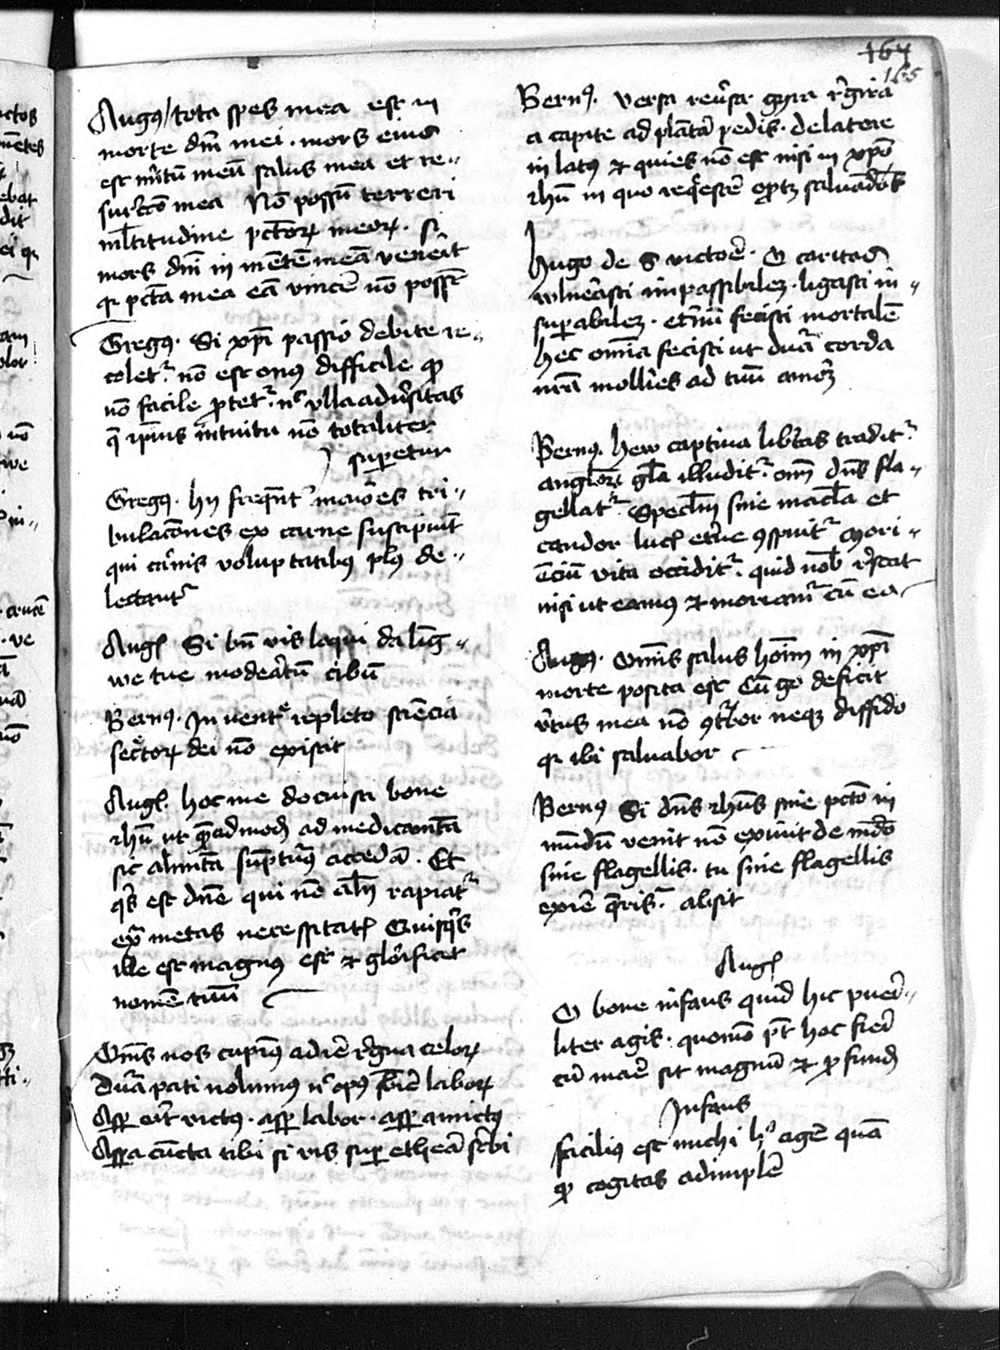 167
165
Augus / tota spes mea est in
morte dni mei . mors eius
est mitu meu salus mea et re-
surcco mea No possu terreri
mltitudine pctoru meoru . Si
mors dni in mete mea venerit
qr pcta mea ea vince no posst
Gregus . Si xpi passio debite re-
colet no est onus difficile qd
no facile portet nc ulla adusitas
q ipius intuitu no totaliter
supetur
Gregus . hii freqnt maiores tri-
bulacones ex carne suscipiut
qui carnis voluptatibus plus de-
lectant
Augs Si bn vis loqui da ling-
we tue moderatu cibu
Bernus . In ventre repleto sciencia
sectoru dei no existit
Augs . hoc me docuisti bone
ihu ut qeadmod ad medicameta
sic alimeta supturus acceda . Et
qs est dne qui no alqn rapiat
extra metas necessitatis Quisqs
ille est magnus est et glorificat
nome tuu
Oms nos cupimus adire regna celoru
Dura pati nolumus nc opus subire laboru
Asper erit victus . asper labor . asper amictus
Aspera cuncta tibi si vis super ethera scribi
Bernus . versa reversa gyra regira
a capite ad planta pedis . de latere
in latus et quies no est nisi in xpo
ihu in quo reqescere oportet saluados
Hugo de S victore . O caritas
vulnerasti impassibilez . ligasti in-
superabilez . eternu fecisti mortale
hec omia fecisti ut dura corda
nra mollires ad tuu amorez
Bernus . hew captiua libtas tradit
angloru gla illudit . om dns fla-
gellat . Speclm sine macla et
candor lucis eterne cospuit Mori-
enciu vita occidit . quid nob restat
nisi ut eamus et moriamr cu eo
Augus . Omis salus hoim in xpi
morte posita est Cu go deficit
virtus mea no conturbor neqz diffido
qr ibi saluabor
Bernus Si dns ihus sine pcto in
mudu venit no exiuit de mdo
sine flagellis . tu sine flagellis
exire queris . absit
Augs
O bone infans quid hic pueri-
liter agis . quomo pt hoc fieri
cu mare sit magnu et profund
Infans
facilius est michi hc agere qua
qd cogitas adimplere